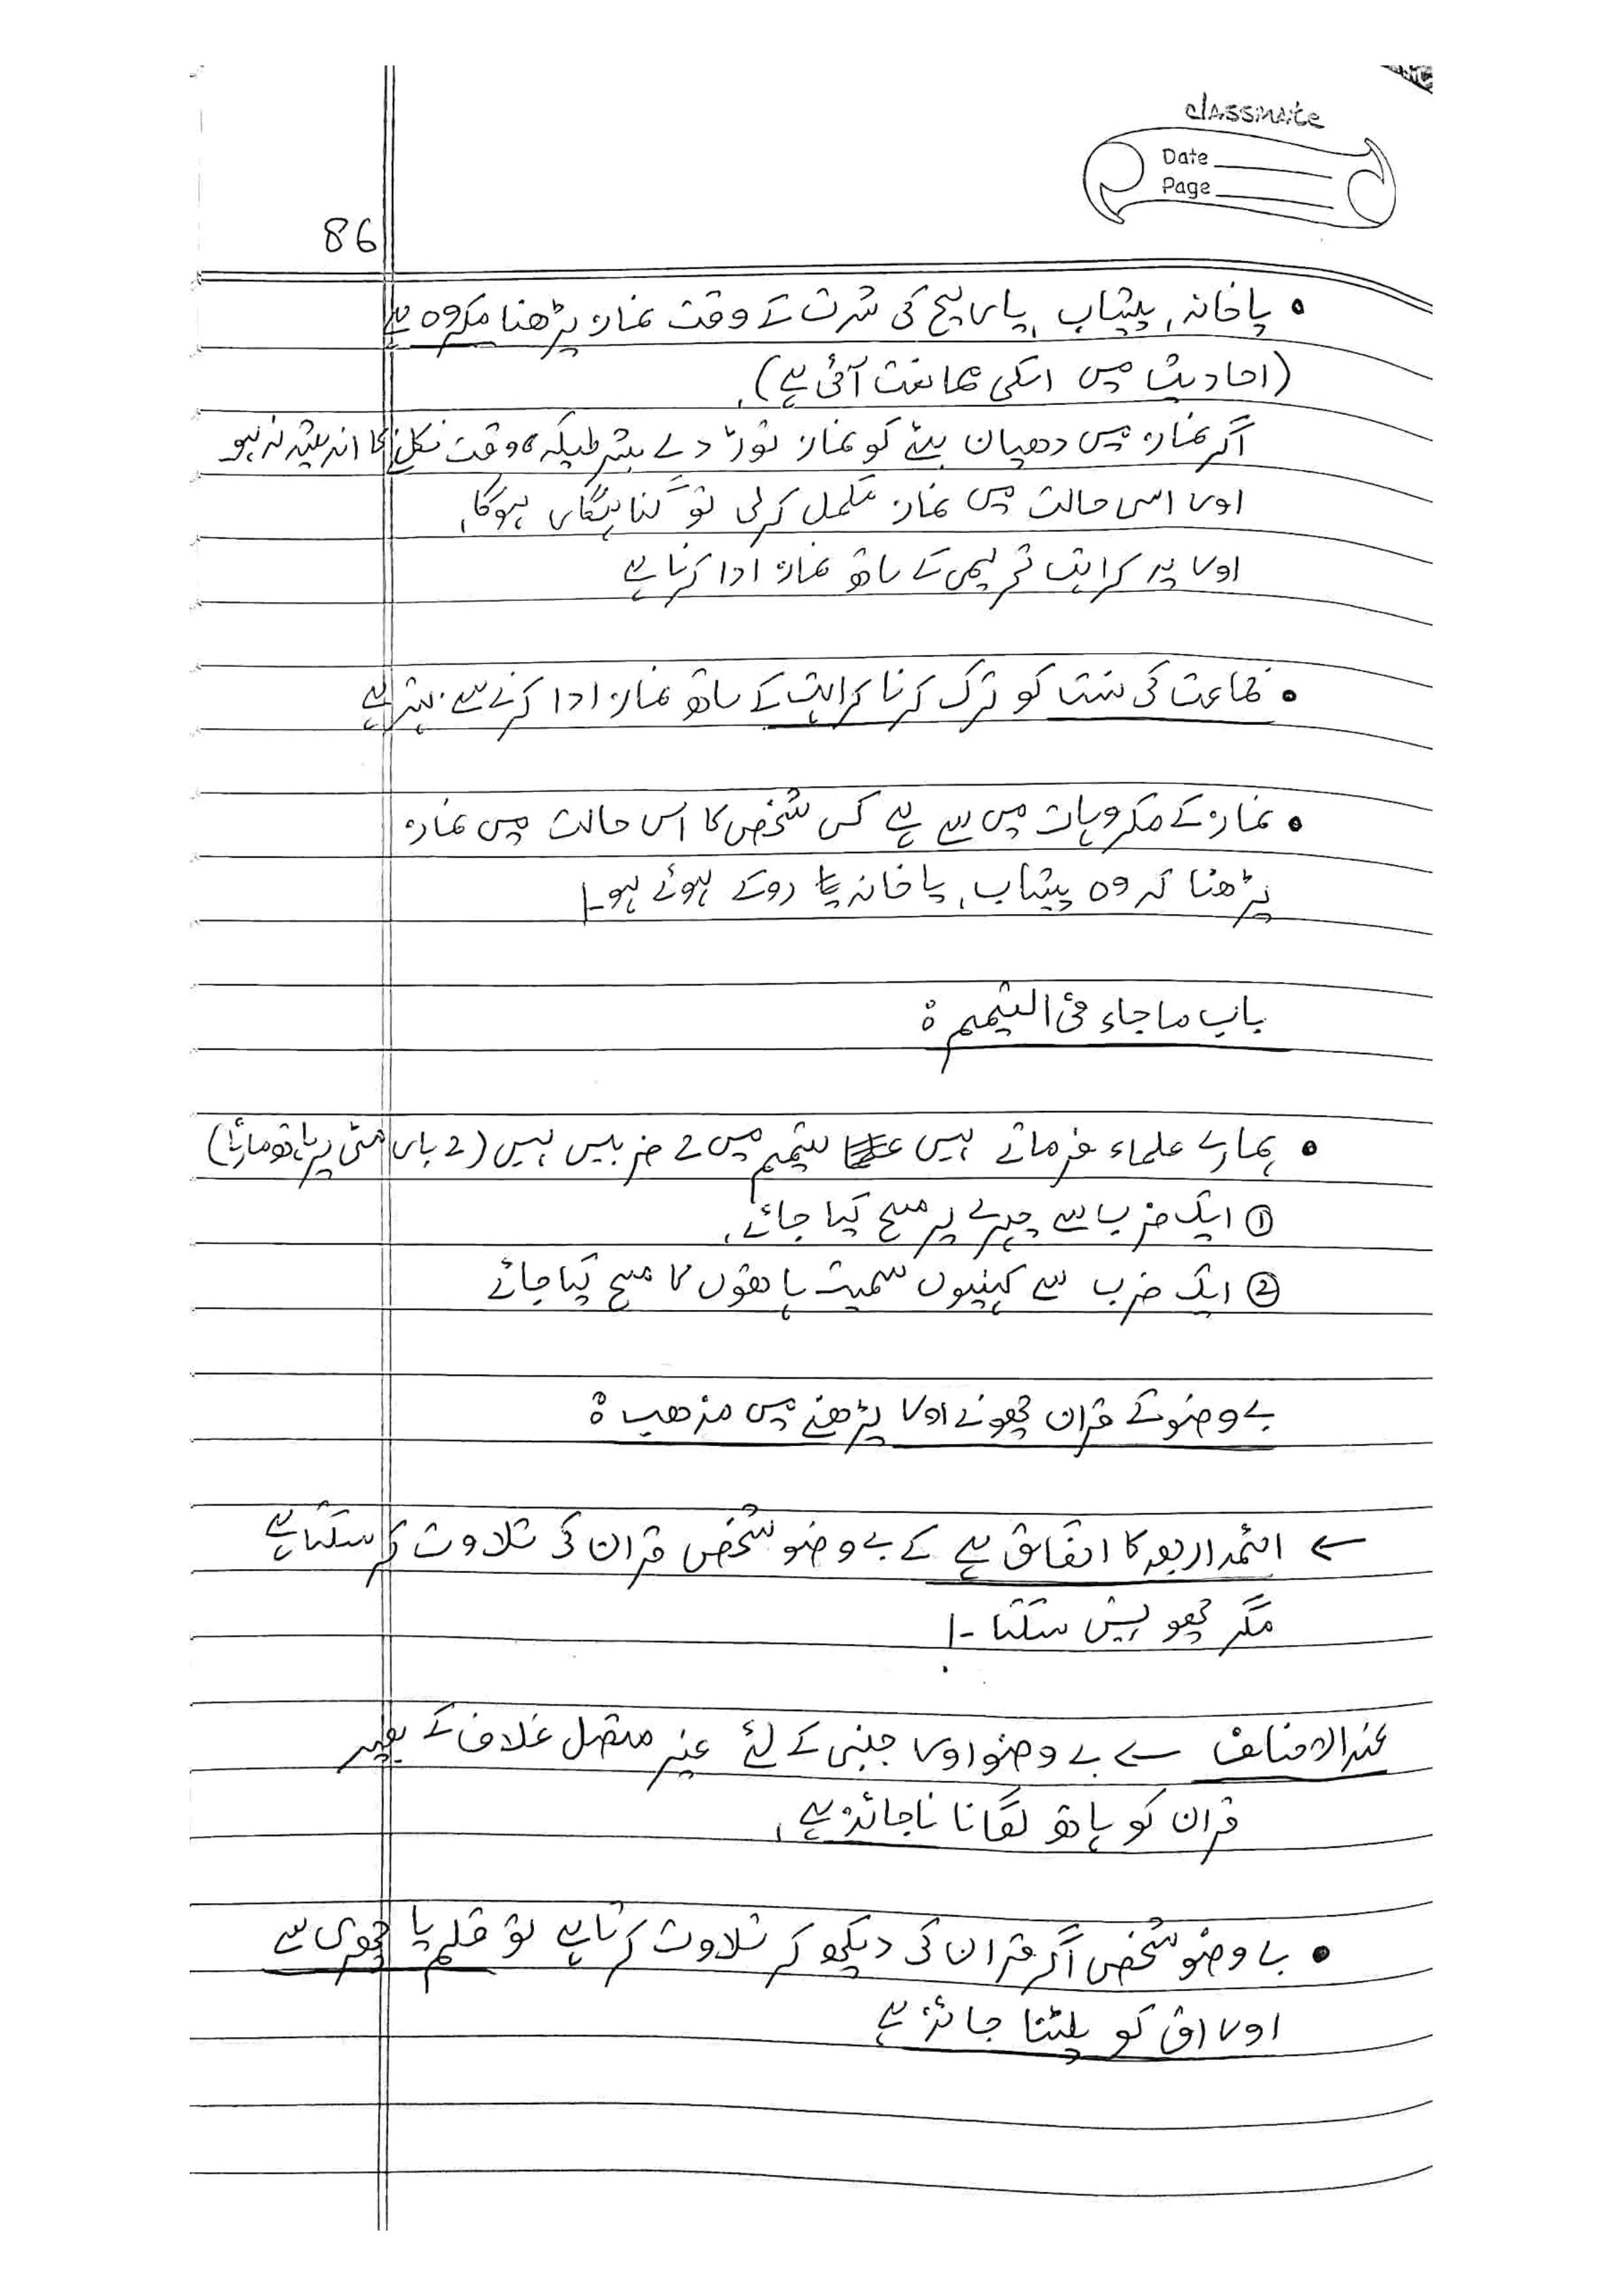 classmate
Date
Page
86
• پاخانہ، پیشاب، یا ریح کی شدت کے وقت نماز پڑھنا مکروہ ہے
(احادیث میں اسکی ممانعت آئی ہے)۔
اگر نماز میں دھیان بٹے کو نماز توڑ دے بشرطیکہ وقت نکلنے کا اندیشہ نہ ہو
اور اسی حالت میں نماز مکمل کرلی تو گناہگار ہوگا،
اور یہ کراہت تحریمی کے ساتھ نماز ادا کرنا ہے
• جماعت کی سنت کو ترک کرنا کراہت کے ساتھ نماز ادا کرنے سے بہتر ہے
• نماز کے مکروہات میں سے ہے کسی شخص کا اس حالت میں نماز
پڑھنا کہ وہ پیشاب، پاخانہ روکے ہوئے ہو۔
باب ما جاء فی التیمم :
• ہمارے علماء فرماتے ہیں تیمم میں 2 ضربیں ہیں (2 بار مٹی پر ہاتھ مارنا)
① ایک ضرب سے چہرے پر مسح کیا جائے،
② ایک ضرب سے کہنیوں سمیت ہاتھوں کا مسح کیا جائے
بے وضو کے قران چھونے اور پڑھنے میں مذھب :
← ائمہ اربعہ کا اتفاق ہے کے بے وضو شخص قران کی تلاوت کر سکتا ہے
مگر چھو نہیں سکتا ۔
عند الاحناف ← بے وضو اور جنبی کے لئے غیر متصل غلاف کے بغیر
قران کو ہاتھ لگانا ناجائز ہے،
• بے وضو شخص اگر قران کی دیکھ کر تلاوت کرتا ہے تو قلم یا چھری سے
اوراق کو پلٹنا جائز ہے